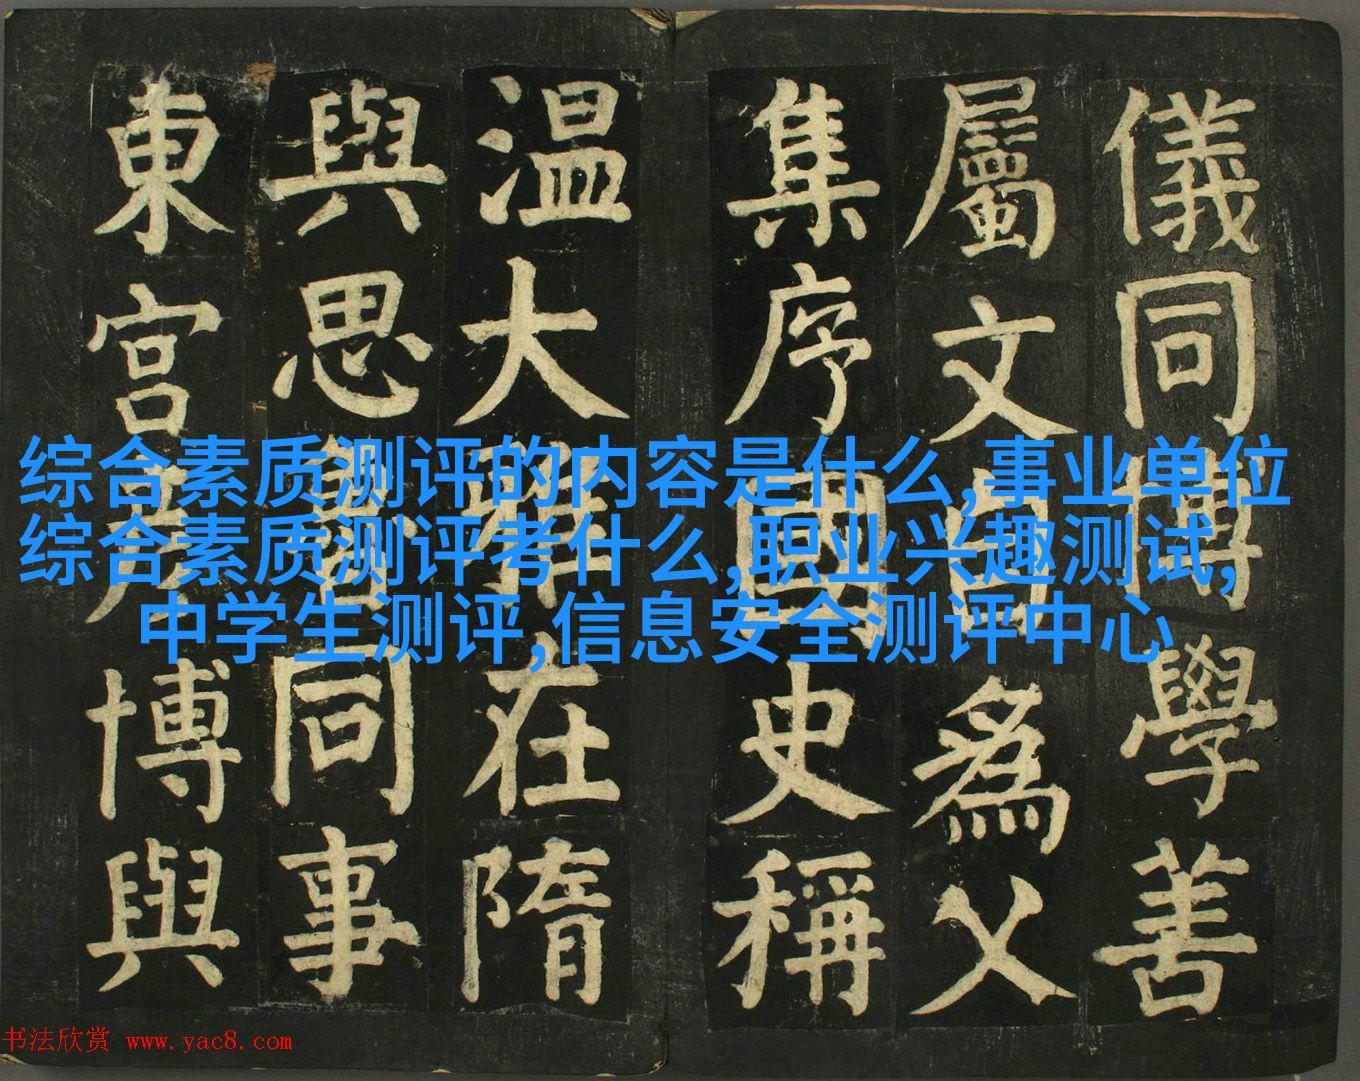 儀同博學善
屬文自爲父
集序國史稱
温大雅在隋
與思魯同事
東宮彥博與
综合素质测评的内容是什么,事业单位
综合素质测评考什么,职业兴趣测试,
中学生测评,信息安全测评中心
书法欣赏 www.yac8.com